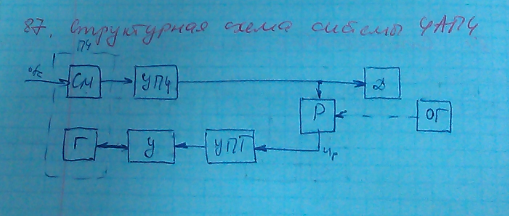 87. Структурная схема системы ФАПЧ
ПЧ
СМ УПЧ Д
Р ОГ
Г У УПТ uр